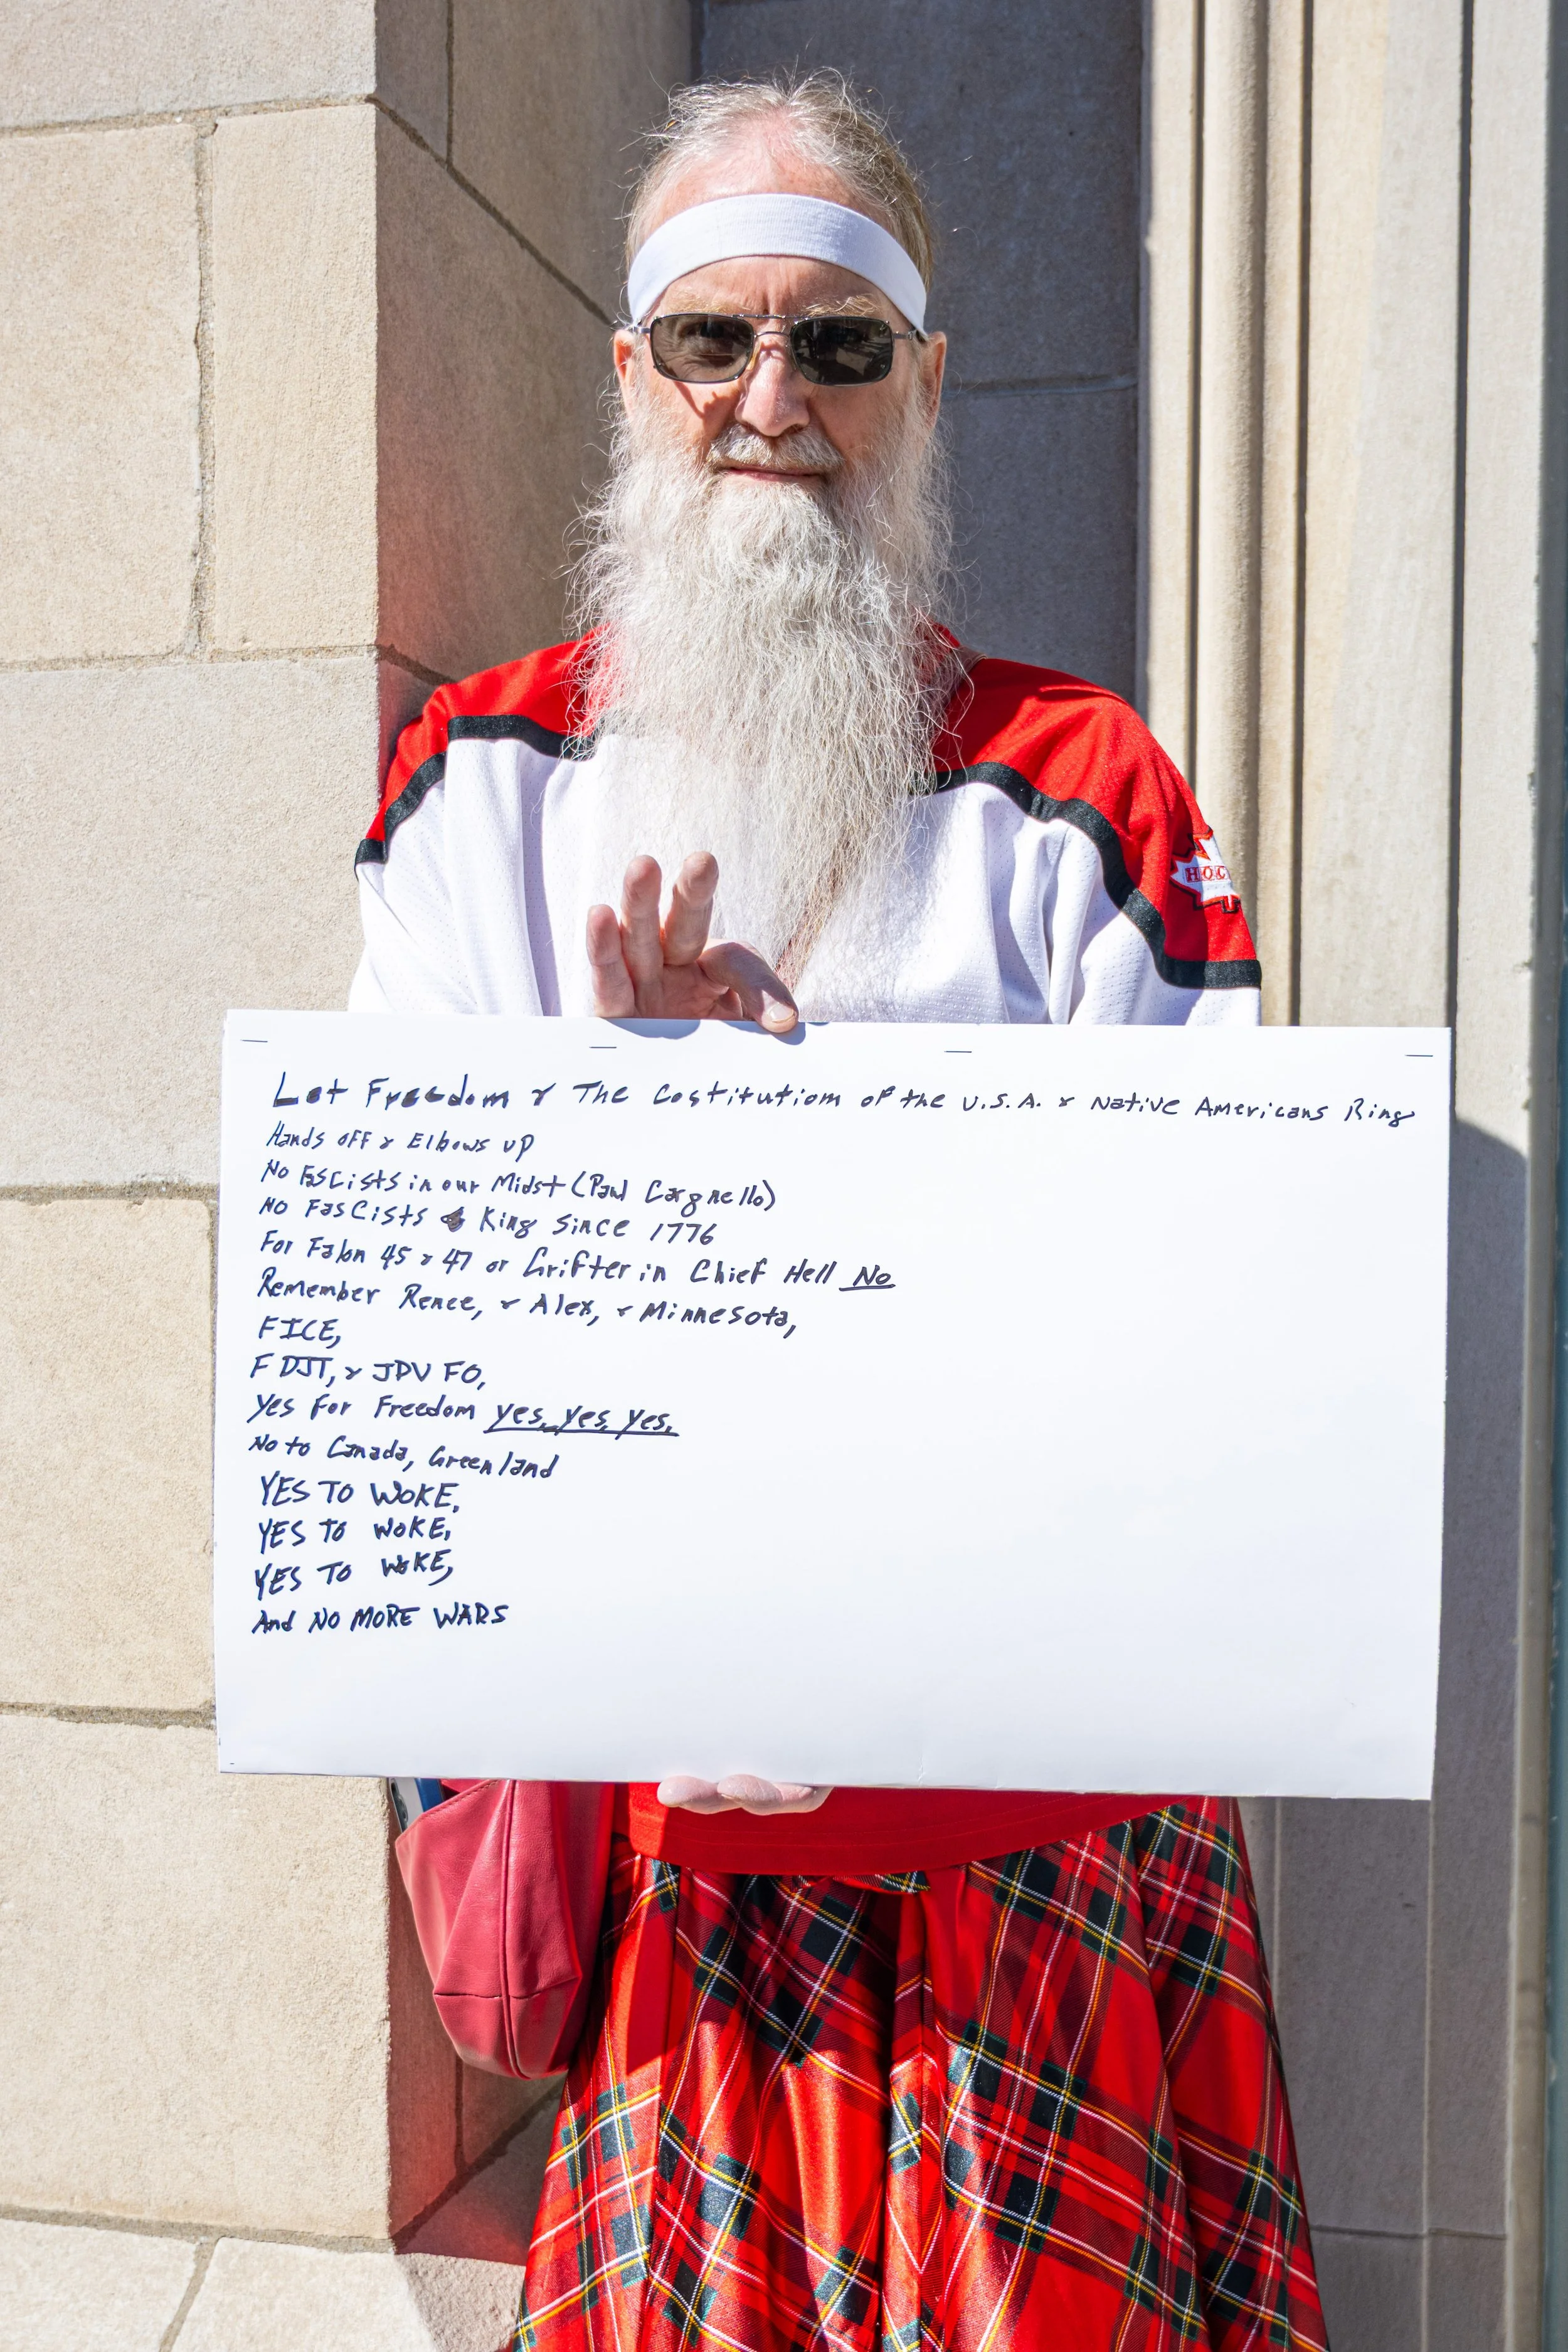 HOC
Let Freedom & The Costitutiom of the U.S.A. & Native Americans Ring
Hands off & Elbows up
No Fascists in our Midst (Paul Cargnello)
No Fascists King Since 1776
For 45 & 47 or Grifter in Chief Hell No
Remember Renee, & Alex, & Minnesota,
FICE,
F DJT, & JDV FO,
Yes For Freedom yes, yes, yes,
No to Canada, Greenland
YES TO WOKE,
YES TO WOKE,
YES TO WOKE,
And NO MORE WARS